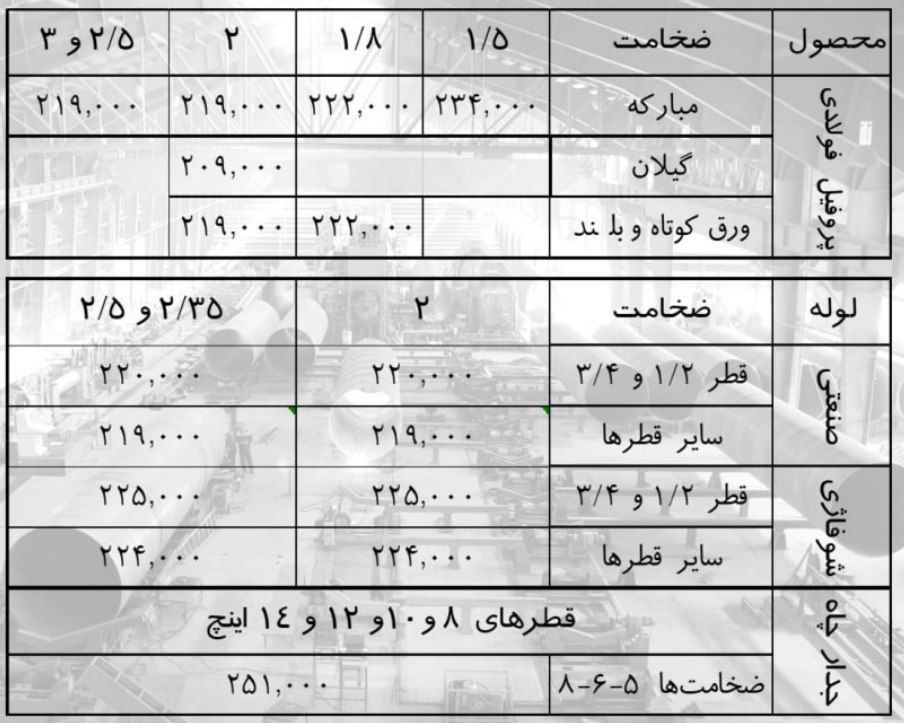 محصول ضخامت ۱/۵ ۱/۸ ۲ ۲/۵ و ۳
پروفیل فولادی
مبارکه ۲۳۴,۰۰۰ ۲۲۲,۰۰۰ ۲۱۹,۰۰۰ ۲۱۹,۰۰۰
گیلان ۲۰۹,۰۰۰
ورق کوتاه و بلند ۲۲۲,۰۰۰ ۲۱۹,۰۰۰
لوله ضخامت ۲ ۲/۳۵ و ۲/۵
صنعتی
قطر ۱/۲ و ۳/۴ ۲۲۰,۰۰۰ ۲۲۰,۰۰۰
سایر قطرها ۲۱۹,۰۰۰ ۲۱۹,۰۰۰
شوفاژی
قطر ۱/۲ و ۳/۴ ۲۲۵,۰۰۰ ۲۲۵,۰۰۰
سایر قطرها ۲۲۴,۰۰۰ ۲۲۴,۰۰۰
جدار چاه
قطرهای ۸ و ۱۰و ۱۲ و ١٤ اینچ
ضخامت‌ها ۵-۶-۸ ۲۵۱,۰۰۰